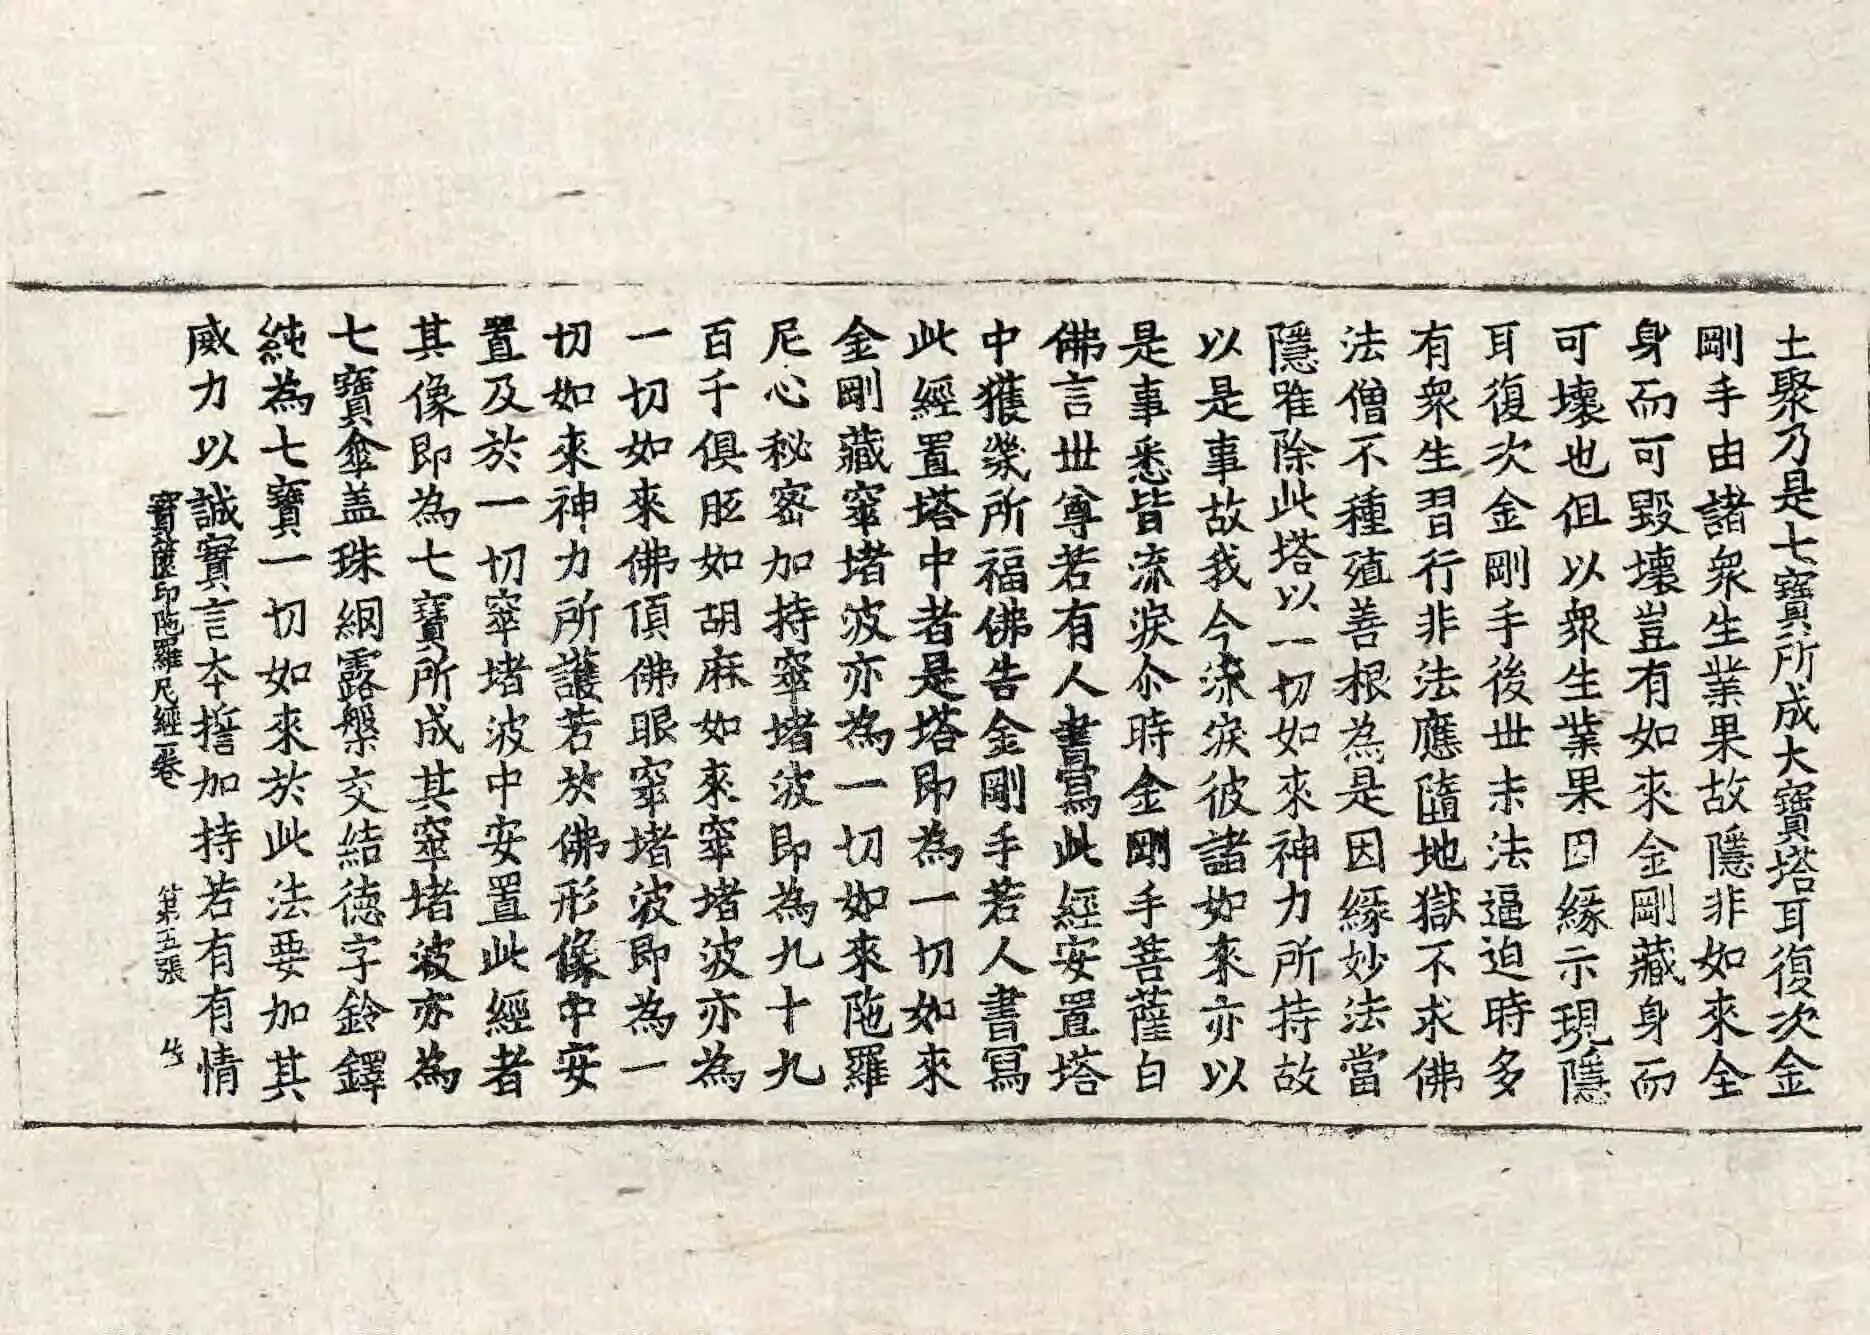 土聚乃是七寶所成大寶塔耳復次金
剛手由諸衆生業果故隱非如來全
身而可毀壞豈有如來金剛藏身而
可壞也但以衆生業果因緣示現隱
耳復次金剛手後世末法逼迫時多
有衆生習行非法應墮地獄不求佛
法僧不種殖善根為是因緣妙法當
隱唯除此塔以一切如來神力所持故
以是事故我今流淚彼諸如來亦以
是事悉皆流淚尒時金剛手菩薩白
佛言世尊若有人書寫此經安置塔
中獲幾所福佛告金剛手若人書寫
此經置塔中者是塔即為一切如來
金剛藏窣堵波亦為一切如來陁羅
尼心秘密加持窣堵波即為九十九
百千俱胝如胡麻如來窣堵波亦為
一切如來佛頂佛眼窣堵波即為一
切如來神力所護若於佛形像中安
置及於一切窣堵波中安置此經者
其像即為七寶所成其窣堵波亦為
七寶傘盖珠網露槃交結德字鈴鐸
純為七寶一切如來於此法要加其
威力以誠實言本誓加持若有有情
寶篋印陁羅尼經一卷 苐五張